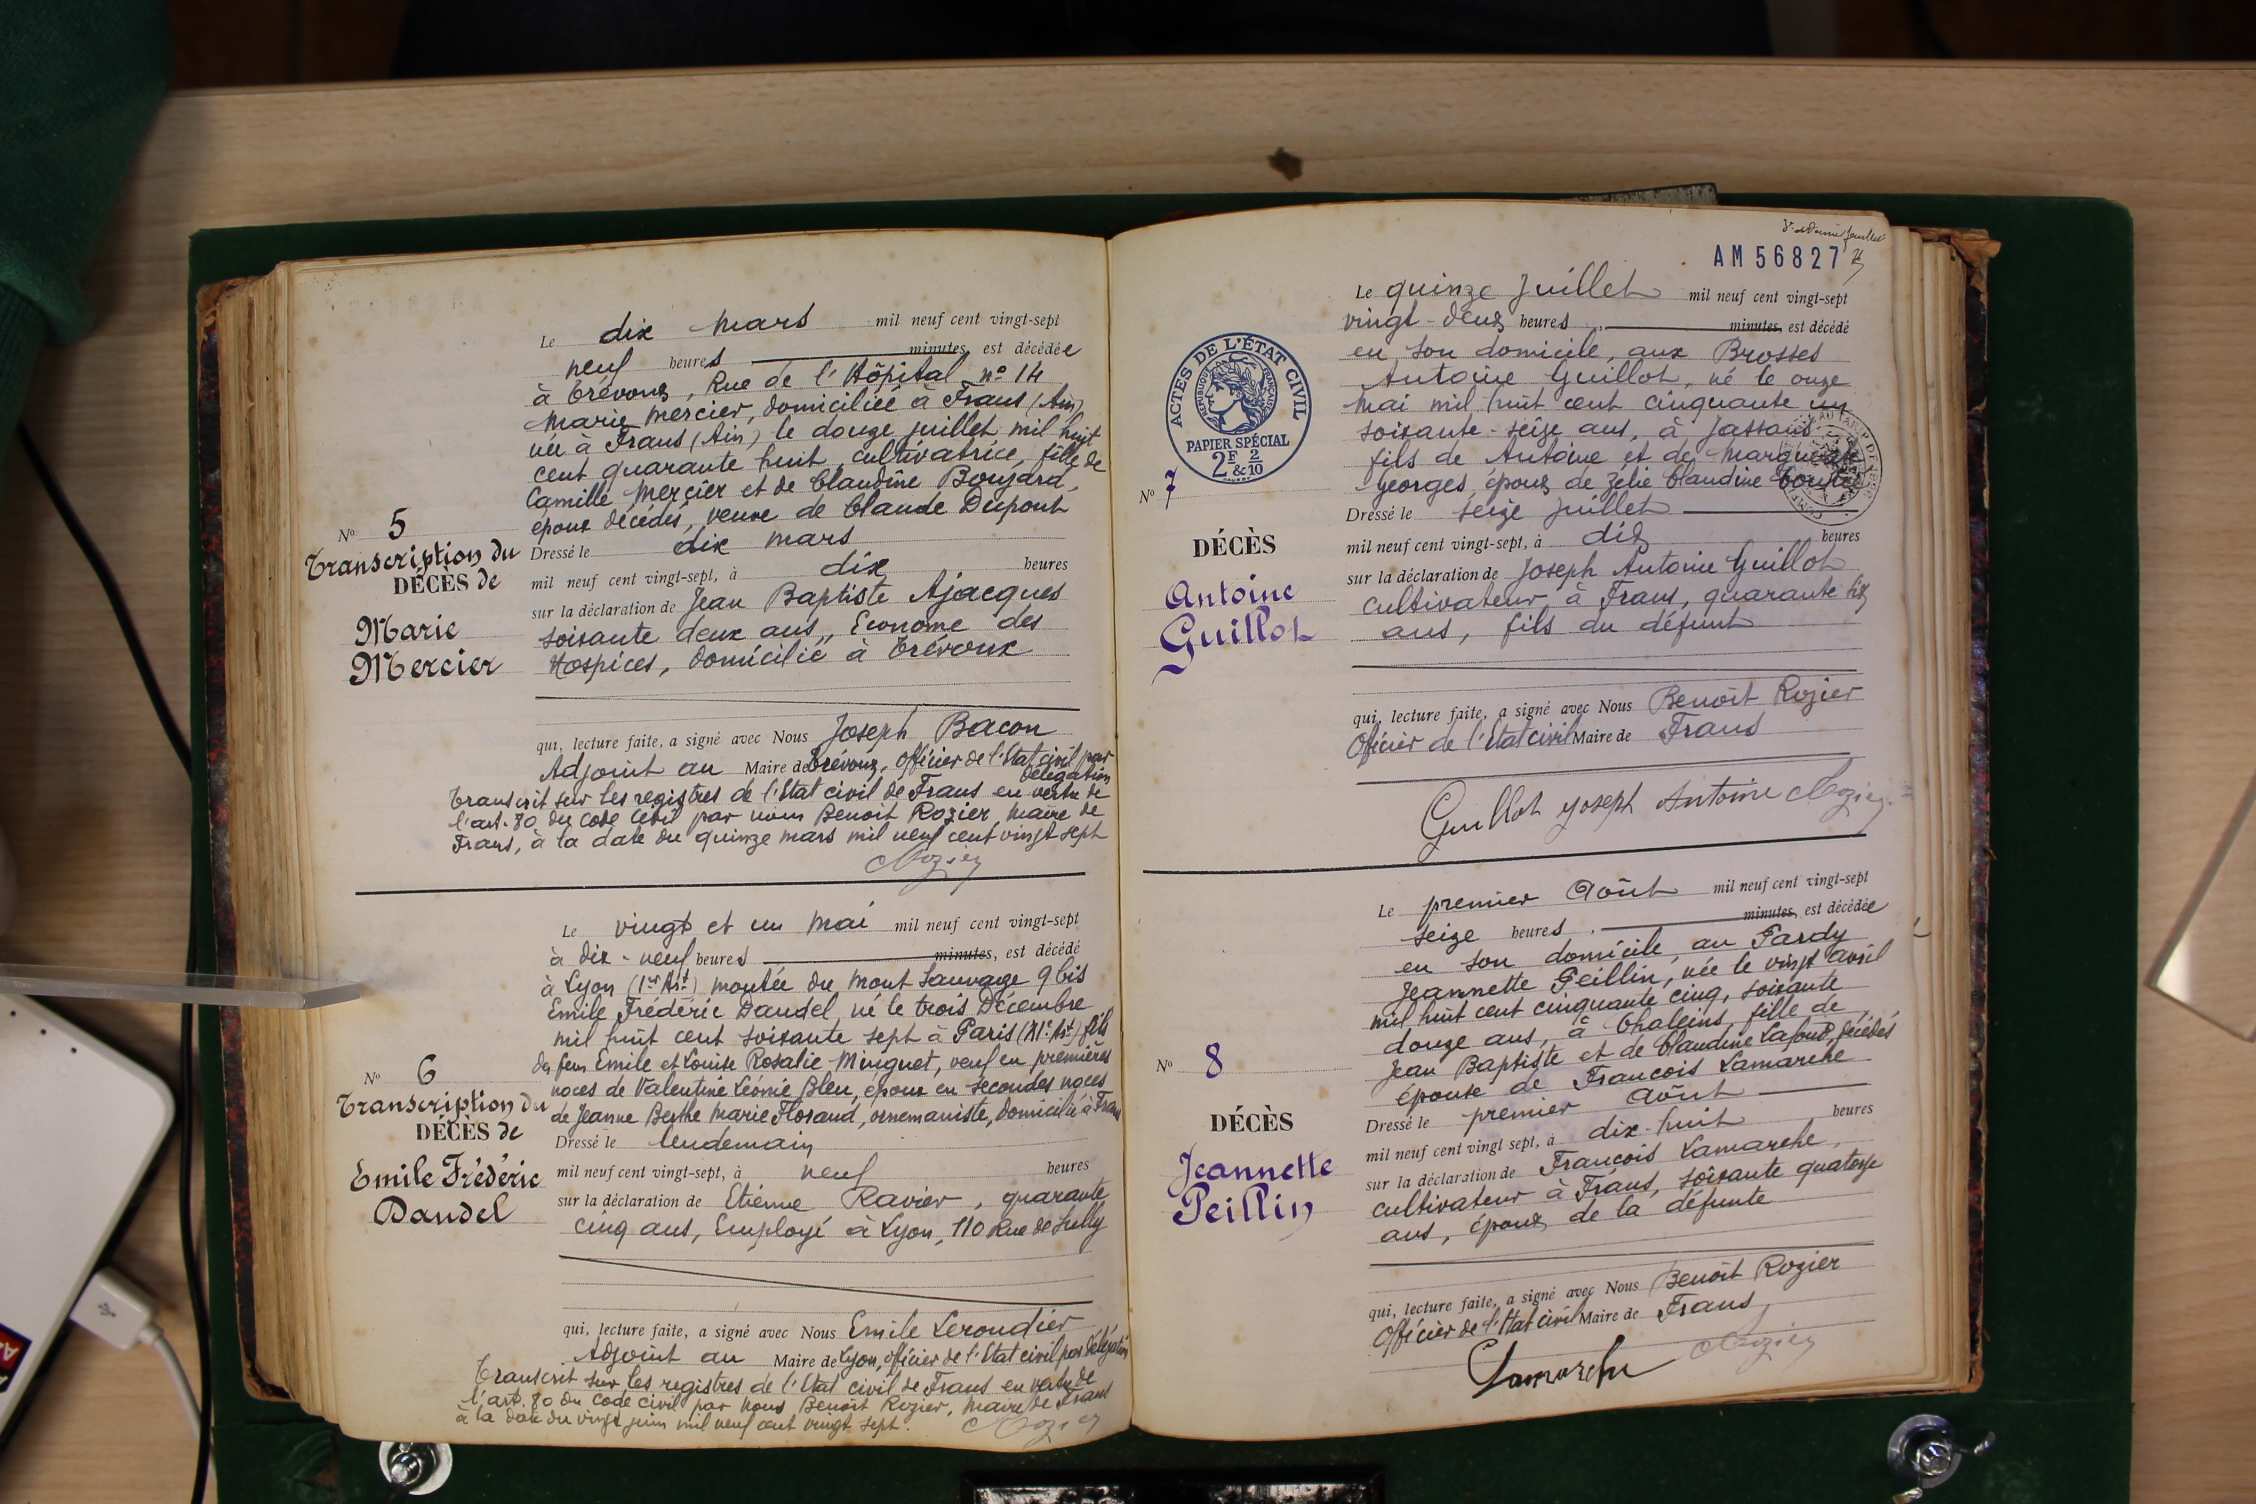 Le dix mars mil neuf cent vingt-sept
neuf heures minutes, est décédée
à Trévoux, Rue de l'Hôpital n° 14
Marie Mercier, domiciliée à Frans (Ain)
née à Frans (Ain) le douze juillet mil huit
cent quarante huit, cultivatrice, fille de
Camille Mercier et de Claudine Boujard,
époux décédés, veuve de Claude Dupont
N° 5
Transcription du
DÉCÈS de
Marie
Mercier
Dressé le dix mars
mil neuf cent vingt-sept, à dix heures
sur la déclaration de Jean Baptiste Ajacques
soixante deux ans, Econome des
Hospices, domicilié à Trévoux
qui, lecture faite, a signé avec Nous Joseph Bacon
Adjoint au Maire de Trévoux, Officier de l'Etat civil par
délégation
Transcrit sur les registres de l'Etat civil de Frans en vertu de
l'art. 80 du Code Civil par nous Benoit Rozier, Maire de
Frans, à la date du quinze mars mil neuf cent vingt sept
Rozier
Le vingt et un Mai mil neuf cent vingt-sept
à dix-neuf heures minutes, est décédé
à Lyon (1er Art) montée du Mont Sauvage 9 bis
Emile Frédéric Dandel, né le trois Décembre
mil huit cent soixante sept à Paris (XIe Art) fils
de feu Emile et Louise Rosalie Minguet, veuf en premières
noces de Valentine Léonie Bleu, époux en secondes noces
de Jeanne Berthe Marie Floraud, ornemaniste, domicilié à Frans
N° 6
Transcription du
DÉCÈS de
Emile Frédéric
Dandel
Dressé le lendemain
mil neuf cent vingt-sept, à neuf heures
sur la déclaration de Etienne Ravier, quarante
cinq ans, Employé à Lyon, 110 Rue de Sully
qui, lecture faite, a signé avec Nous Emile Leroudier
Adjoint au Maire de Lyon, officier de l'Etat civil par délégation
Transcrit sur les registres de l'Etat civil de Frans en vertu de
l'art. 80 du Code civil par Nous Benoit Rozier, Maire de Frans
à la date du vingt juin mil neuf cent vingt sept.
Rozier
AM 56827
ACTES DE L'ÉTAT CIVIL
RÉPUBLIQUE FRANÇAISE
PAPIER SPÉCIAL
2F 2
&10
Le quinze Juillet mil neuf cent vingt-sept
vingt-deux heures minutes, est décédé
en son domicile, aux Brosses
Antoine Guillot, né le onze
Mai mil huit cent cinquante un
soixante-seize ans, à Jassans
fils de Antoine et de Marguerite
Georges, époux de Zélie Claudine
N° 7
DÉCÈS
Antoine
Guillot
Dressé le seize Juillet
mil neuf cent vingt-sept, à dix heures
sur la déclaration de Joseph Antoine Guillot
cultivateur à Frans, quarante six
ans, fils du défunt
qui, lecture faite, a signé avec Nous Benoit Rozier
Officier de l'Etat civil Maire de Frans
Guillot Joseph Antoine Rozier
Le premier Août mil neuf cent vingt-sept
seize heures minutes, est décédée
en son domicile, au Pardy
Jeannette Peillin, née le vingt avril
mil huit cent cinquante cinq, soixante
douze ans, à Chaleins, fille de
Jean Baptiste et de Claudine Lafont, décédés
épouse de François Lamarche
N° 8
DÉCÈS
Jeannette
Peillin
Dressé le premier Août
mil neuf cent vingt sept, à dix-huit heures
sur la déclaration de François Lamarche,
cultivateur à Frans, soixante quatorze
ans, époux de la défunte
qui, lecture faite, a signé avec Nous Benoit Rozier
Officier de l'Etat civil Maire de Frans,
Lamarche Rozier